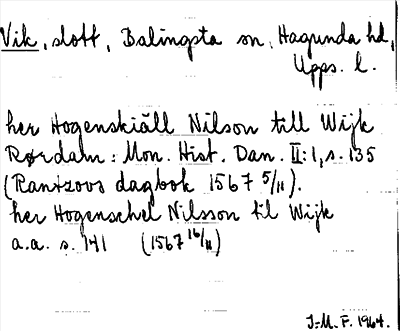 Vik, slott, Balingsta sn, Hagunda hd,
Upps. l.
her Hogenskiäll Nilson till Wijk
Rørdam: Mon. Hist. Dan. II:1, s. 135
(Rantzovs dagbok 1567 5/11).
her Hogenschel Nilsson til Wijk
a.a. s. 141 (1567 16/11)
J-M. F. 1964.